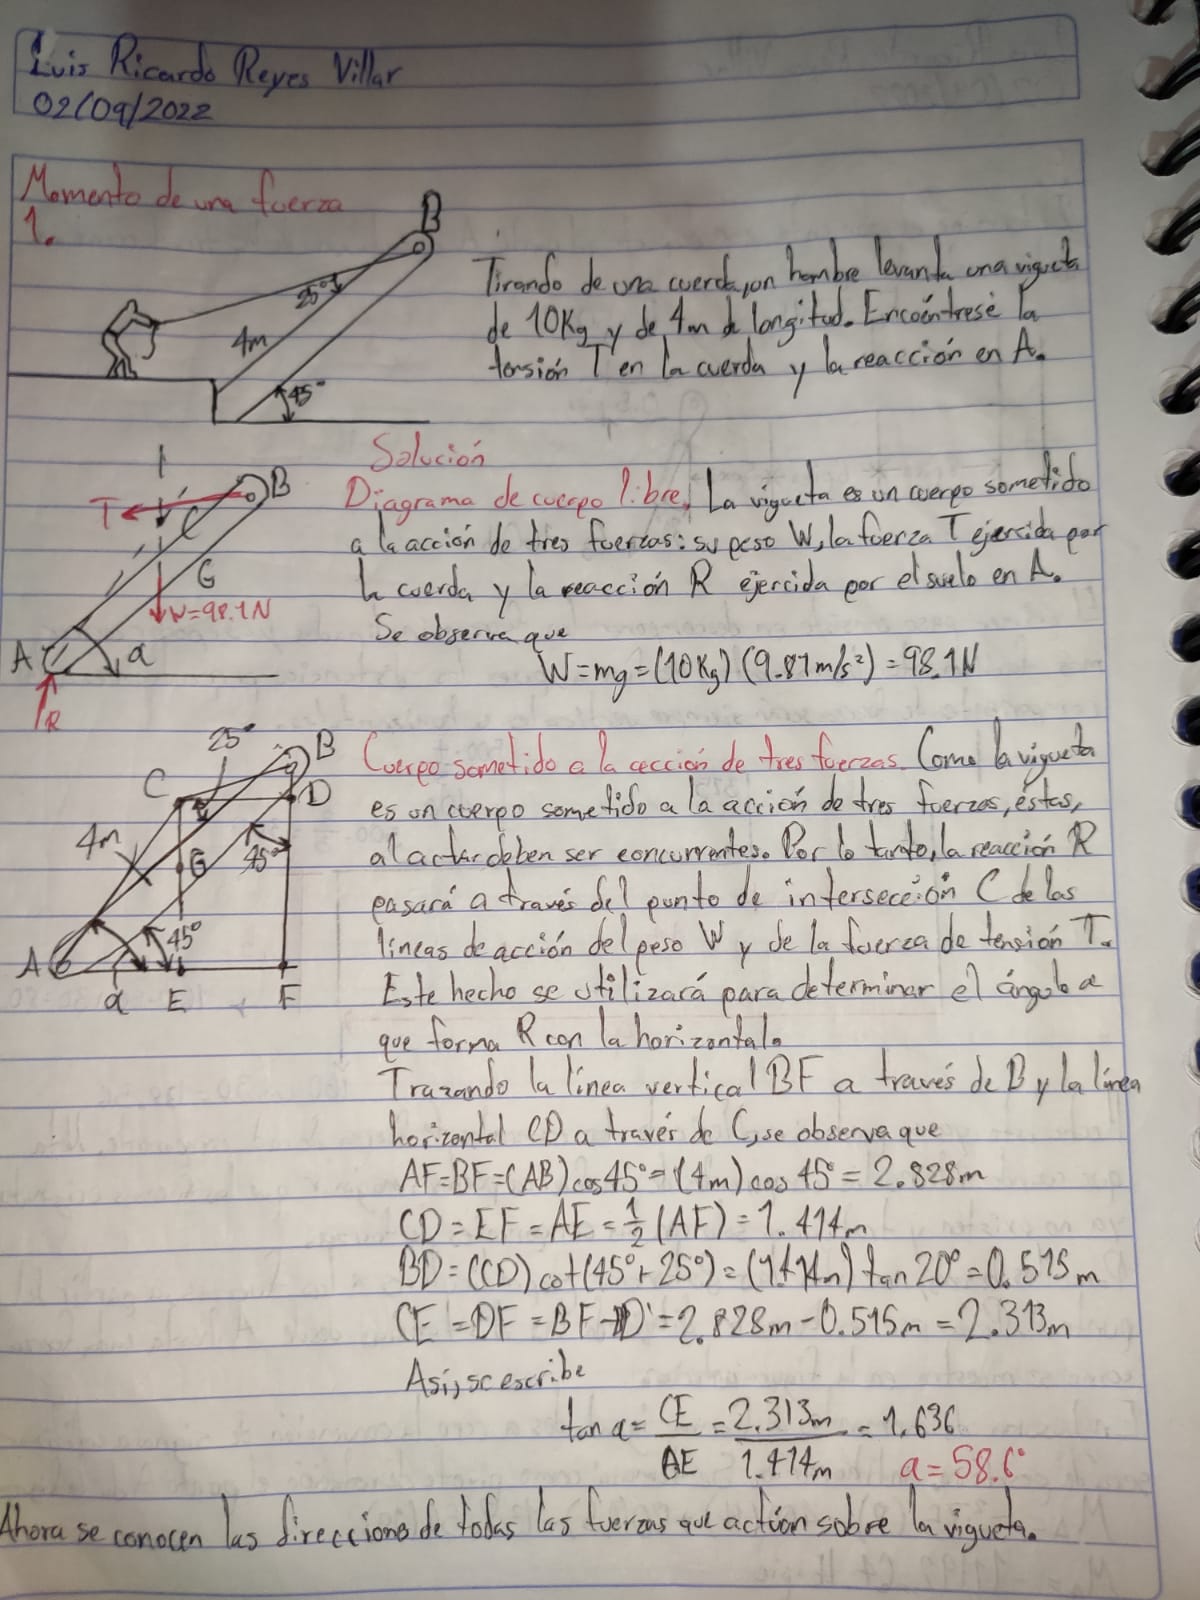 Luis Ricardo Reyes Villar
02/09/2022
Momento de una fuerza
1.
B
25°
4m
45°
Tirando de una cuerda, un hombre levanta una vigueta
de 10Kg y de 4m de longitud. Encoéntrese la
tensión T en la cuerda y la reacción en A.
Solución
T
C
B
G
W=98.1N
A
a
R
Diagrama de cuerpo libre. La vigueta es un cuerpo sometido
a la acción de tres fuerzas: su peso W, la fuerza T ejercida por
la cuerda y la reacción R ejercida por el suelo en A.
Se observa que
W=mg=(10Kg)(9.81m/s²)=98.1N
25°
B
C
D
4m
G
45°
45°
A
a
E
F
Cuerpo sometido a la acción de tres fuerzas. Como la vigueta
es un cuerpo sometido a la acción de tres fuerzas, éstas,
al actuar deben ser concurrentes. Por lo tanto, la reacción R
pasará a través del punto de intersección C de las
líneas de acción del peso W y de la fuerza de tensión T.
Este hecho se utilizará para determinar el ángulo a
que forma R con la horizontal.
Trazando la línea vertical BF a través de B y la línea
horizontal CD a través de C, se observa que
AF=BF=(AB)cos45°=(4m)cos 45°=2.828m
CD=EF=AE=½(AF)=1.414m
BD=(CD)cot(45°+25°)=(1.414m)tan 20°=0.515m
CE=DF=BF-BD=2.828m-0.515m=2.313m
Así, se escribe
tan a=CE/AE=2.313m/1.414m=1.636
a=58.6°
Ahora se conocen las direcciones de todas las fuerzas que actúan sobre la vigueta.